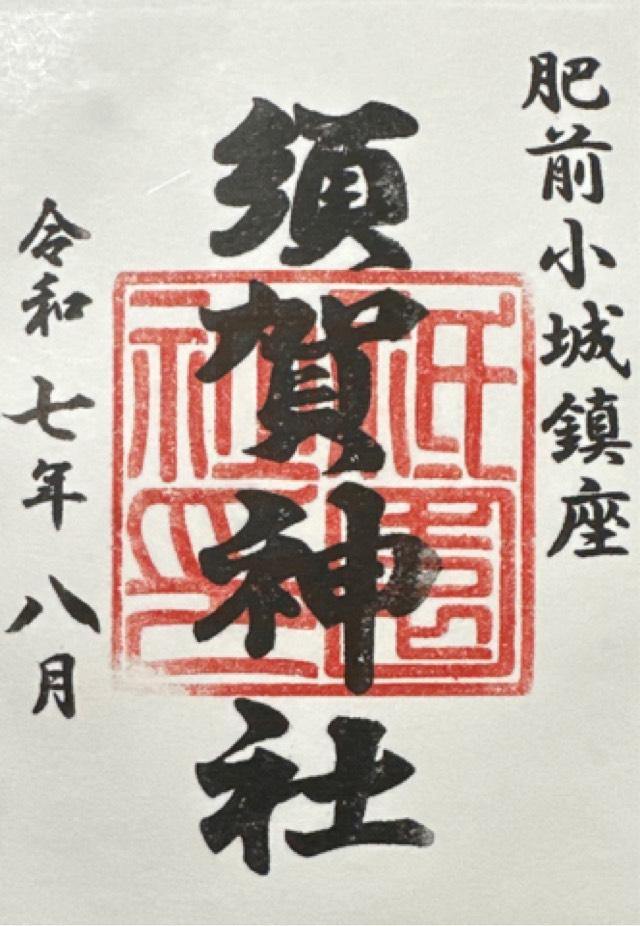 肥前小城鎮座
須賀神社
祇園社印
令和七年八月